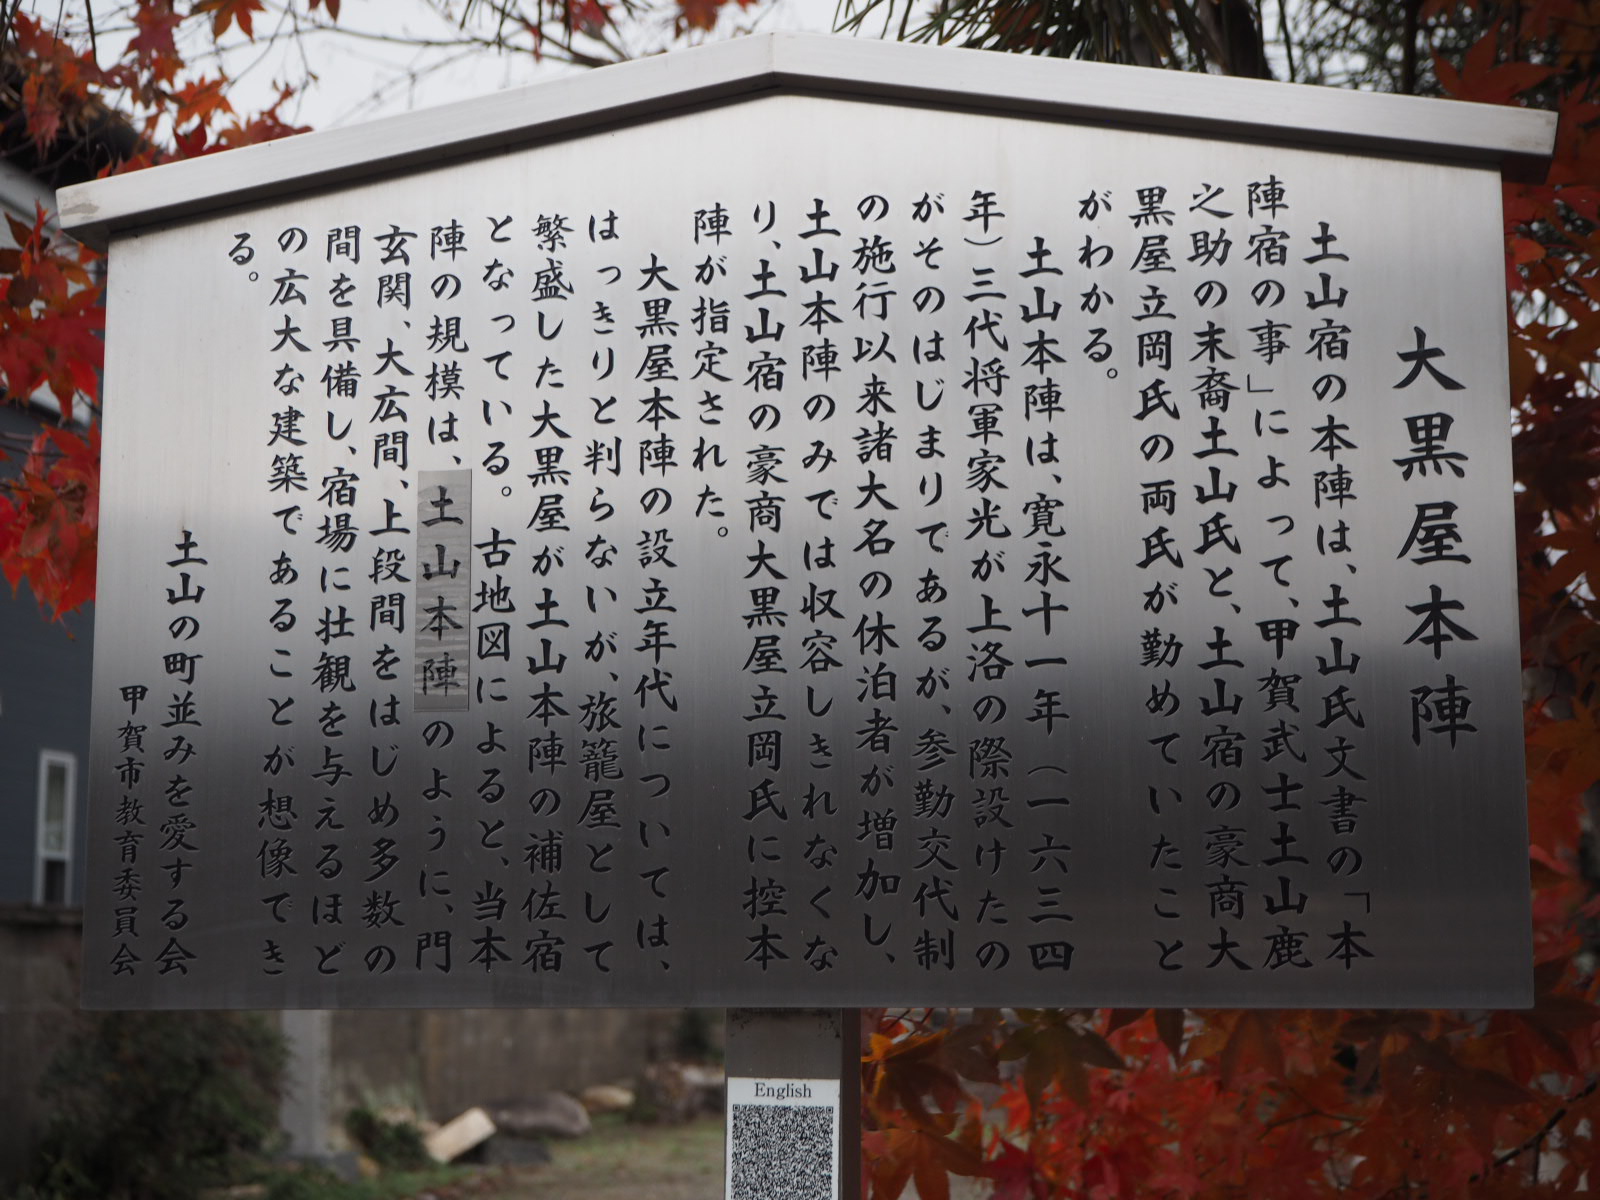 大黒屋本陣
土山宿の本陣は、土山氏文書の「本
陣宿の事」によって、甲賀武士土山鹿
之助の末裔土山氏と、土山宿の豪商大
黒屋立岡氏の両氏が勤めていたこと
がわかる。
土山本陣は、寛永十一年（一六三四
年）三代将軍家光が上洛の際設けたの
がそのはじまりであるが、参勤交代制
の施行以来諸大名の休泊者が増加し、
土山本陣のみでは収容しきれなくな
り、土山宿の豪商大黒屋立岡氏に控本
陣が指定された。
大黒屋本陣の設立年代については、
はっきりと判らないが、旅籠屋として
繁盛した大黒屋が土山本陣の補佐宿
となっている。古地図によると、当本
陣の規模は、土山本陣のように、門
玄関、大広間、上段間をはじめ多数の
間を具備し、宿場に壮観を与えるほど
の広大な建築であることが想像でき
る。
土山の町並みを愛する会
甲賀市教育委員会
English